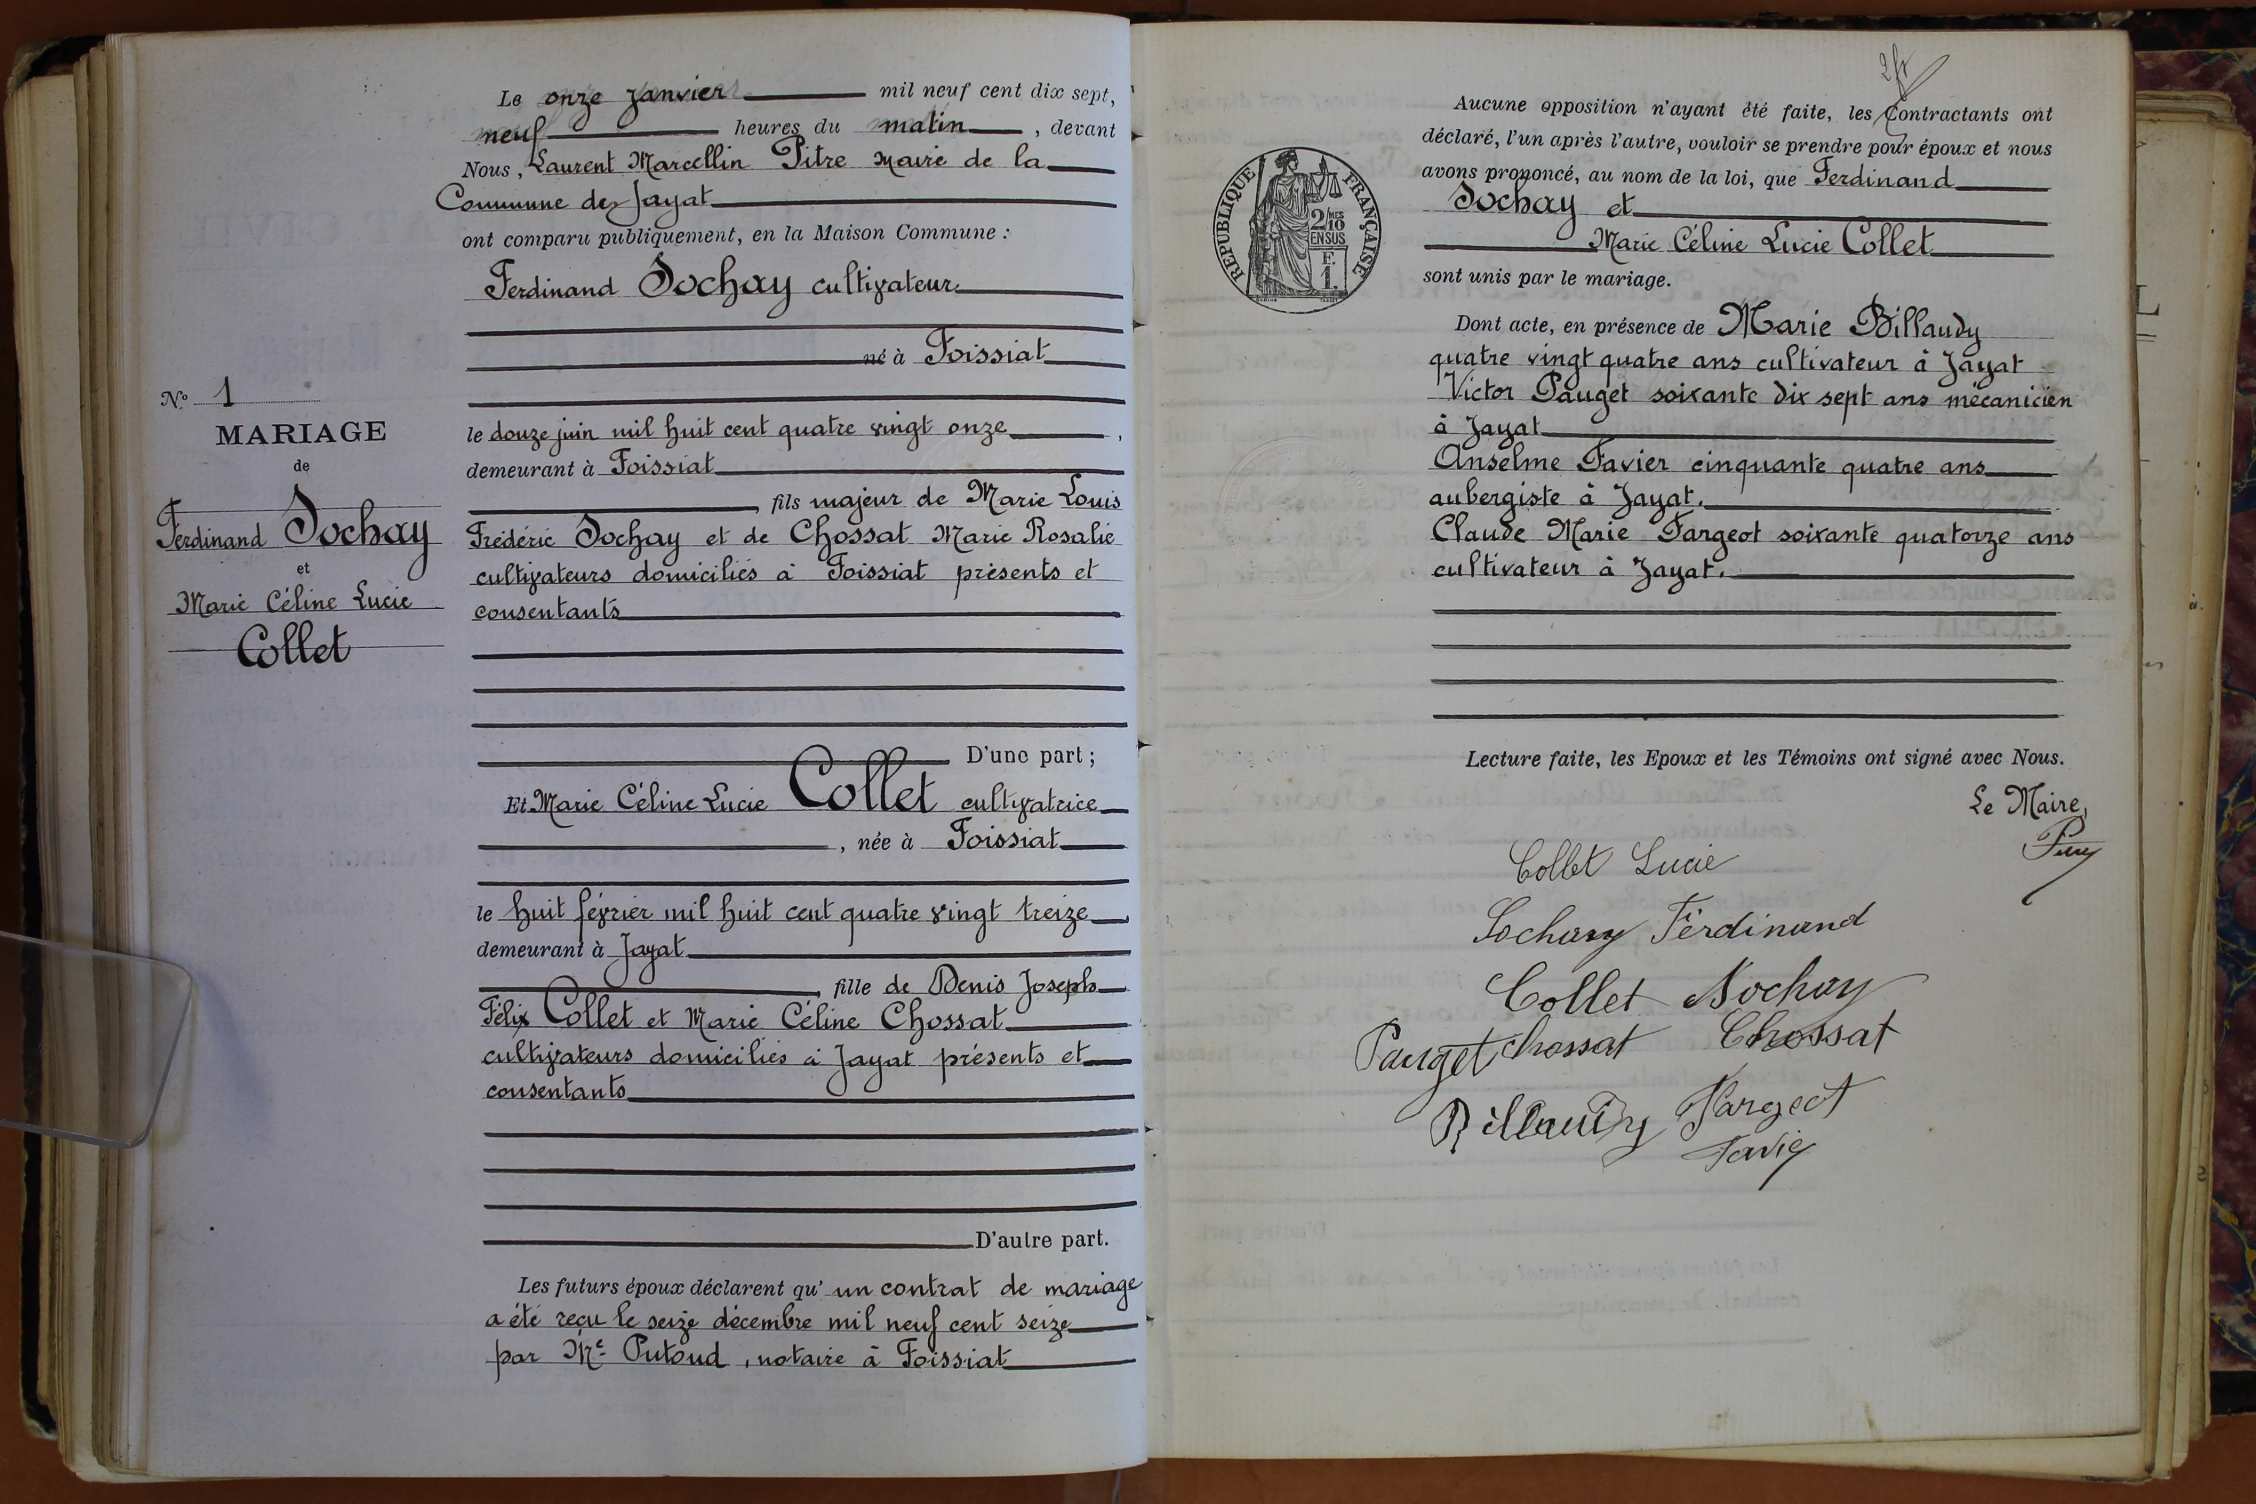 Le onze janvier mil neuf cent dix sept,
neuf heures du matin, devant
Nous, Laurent Marcellin Pitre maire de la
Commune de Jayat
ont comparu publiquement, en la Maison Commune :
Ferdinand Sochay cultivateur
né à Foissiat
le douze juin mil huit cent quatre vingt onze,
demeurant à Foissiat
fils majeur de Marie Louis
Frédéric Sochay et de Chossat Marie Rosalie
cultivateurs domiciliés à Foissiat présents et
consentants
D'une part ;
Et Marie Céline Lucie Collet cultivatrice
, née à Foissiat
le huit février mil huit cent quatre vingt treize,
demeurant à Jayat
fille de Denis Joseph
Félix Collet et Marie Céline Chossat
cultivateurs domiciliés à Jayat présents et
consentants
D'autre part.
Les futurs époux déclarent qu'un contrat de mariage
a été reçu le seize décembre mil neuf cent seize
par Me Putoud, notaire à Foissiat
No 1
MARIAGE
de
Ferdinand Sochay
et
Marie Céline Lucie
Collet
RÉPUBLIQUE FRANÇAISE
2/10MES
EN SUS
F.
1.
Aucune opposition n'ayant été faite, les Contractants ont
déclaré, l'un après l'autre, vouloir se prendre pour époux et nous
avons prononcé, au nom de la loi, que Ferdinand
Sochay et
Marie Céline Lucie Collet
sont unis par le mariage.
Dont acte, en présence de Marie Billaudy
quatre vingt quatre ans cultivateur à Jayat
Victor Pauget soixante dix sept ans mécanicien
à Jayat
Anselme Favier cinquante quatre ans
aubergiste à Jayat.
Claude Marie Fargeot soixante quatorze ans
cultivateur à Jayat.
Lecture faite, les Epoux et les Témoins ont signé avec Nous.
Le Maire,
Pitre
Collet Lucie
Sochay Ferdinand
Collet Sochay
Pauget Chossat Chossat
Billaudy Fargeot
Favier